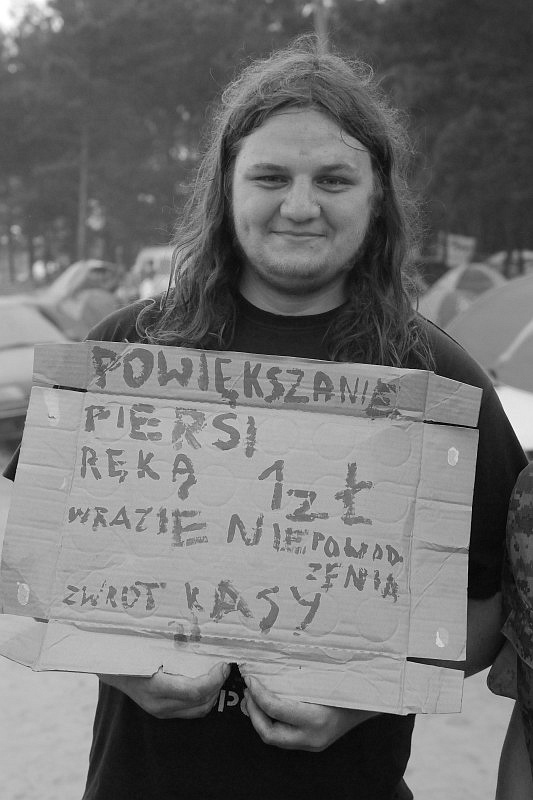 POWIĘKSZANIE
PIERSI
RĘKĄ 1 ZŁ
WRAZIE NIEPOWOD
ZENIA
ZWROT KASY